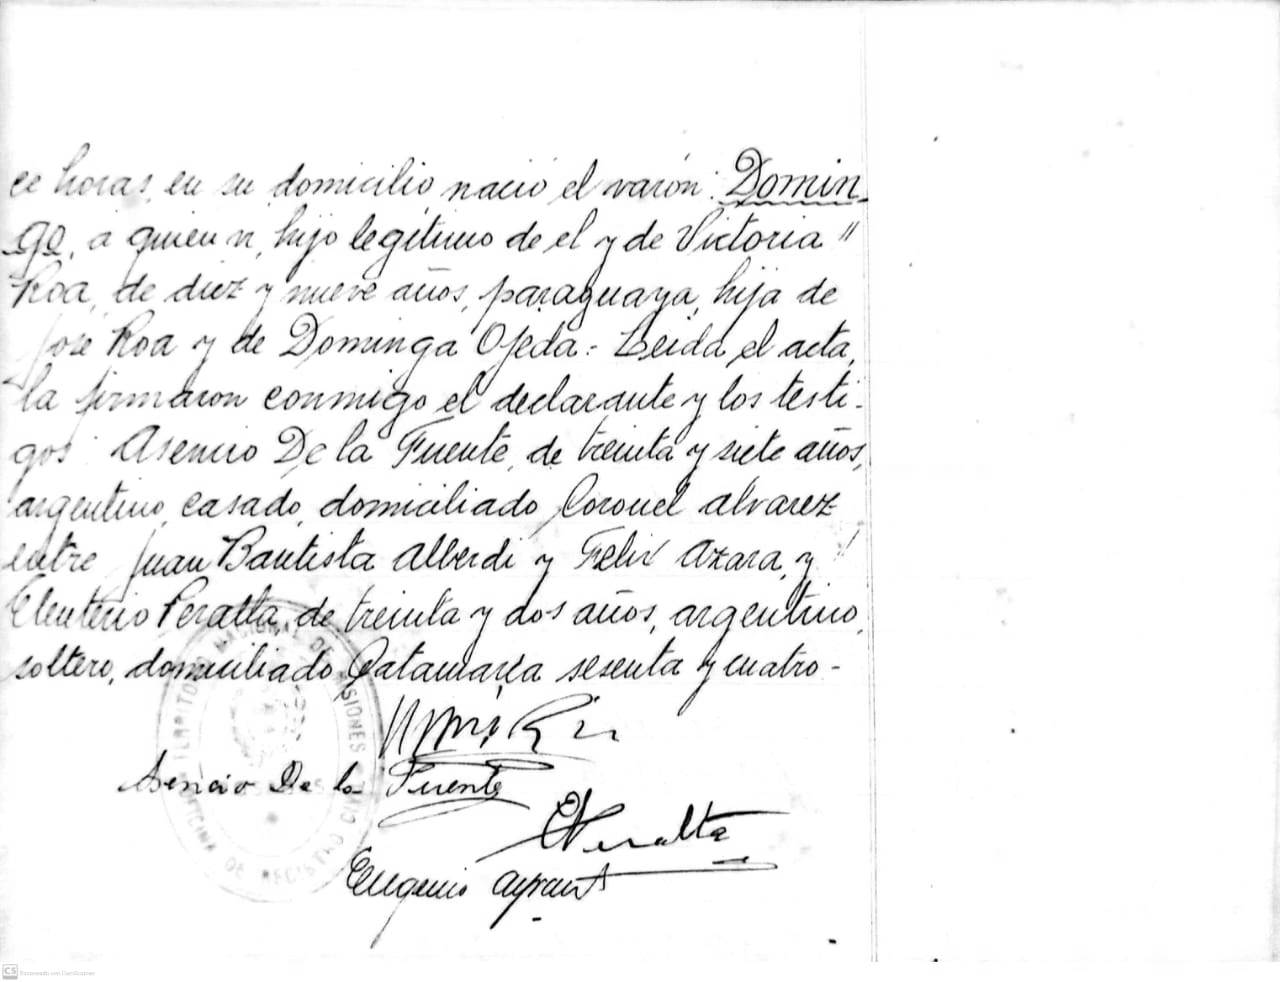 ce horas, en su domicilio, nació el varón: Domin-
go, a quien vi, hijo legítimo de el y de Victoria "
Roa, de diez y nueve años, paraguaya, hija de
José Roa y de Dominga Ojeda.- Leida el acta,
la firmaron conmigo el declarante y los testi-
gos Asencio De la Fuente, de treinta y siete años,
argentino, casado, domiciliado Coronel Alvarez
entre Juan Bautista Alberdi y Felix Azara, y
Eleuterio Peralta, de treinta y dos años, argentino,
soltero, domiciliado Catamarca sesenta y cuatro -
TERRITORIO NACIONAL DE MISIONES
OFICINA DE REGISTRO CIVIL
Asencio De la Fuente
EPeralta
Eugenio
CS Escaneado con CamScanner